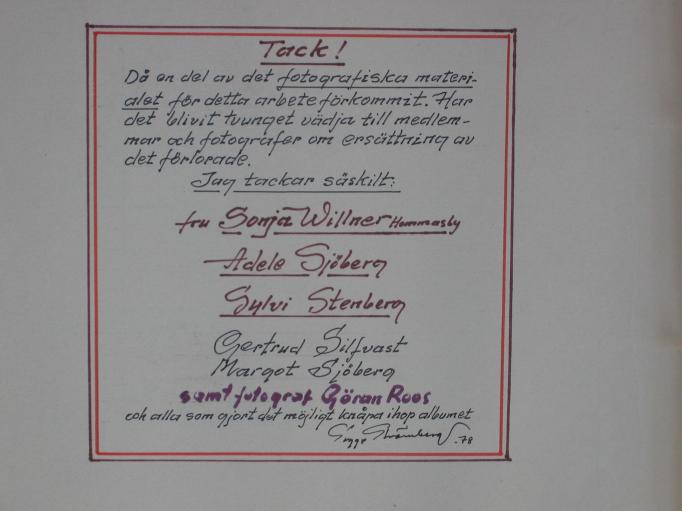 Tack!
Då en del av det fotografiska materi-
alet för detta arbete förkommit. Har
det blivit tvunget vädja till medlem-
mar och fotografer om ersättning av
det förlorade.
Jag tackar säskilt:
fru Sonja Willner Hommasby
Adele Sjöberg
Sylvi Stenberg
Gertrud Silfvast
Margot Sjöberg
samt fotograf Göran Roos
och alla som gjort det möjligt knåpa ihop albumet
Sigge Strömberg -78